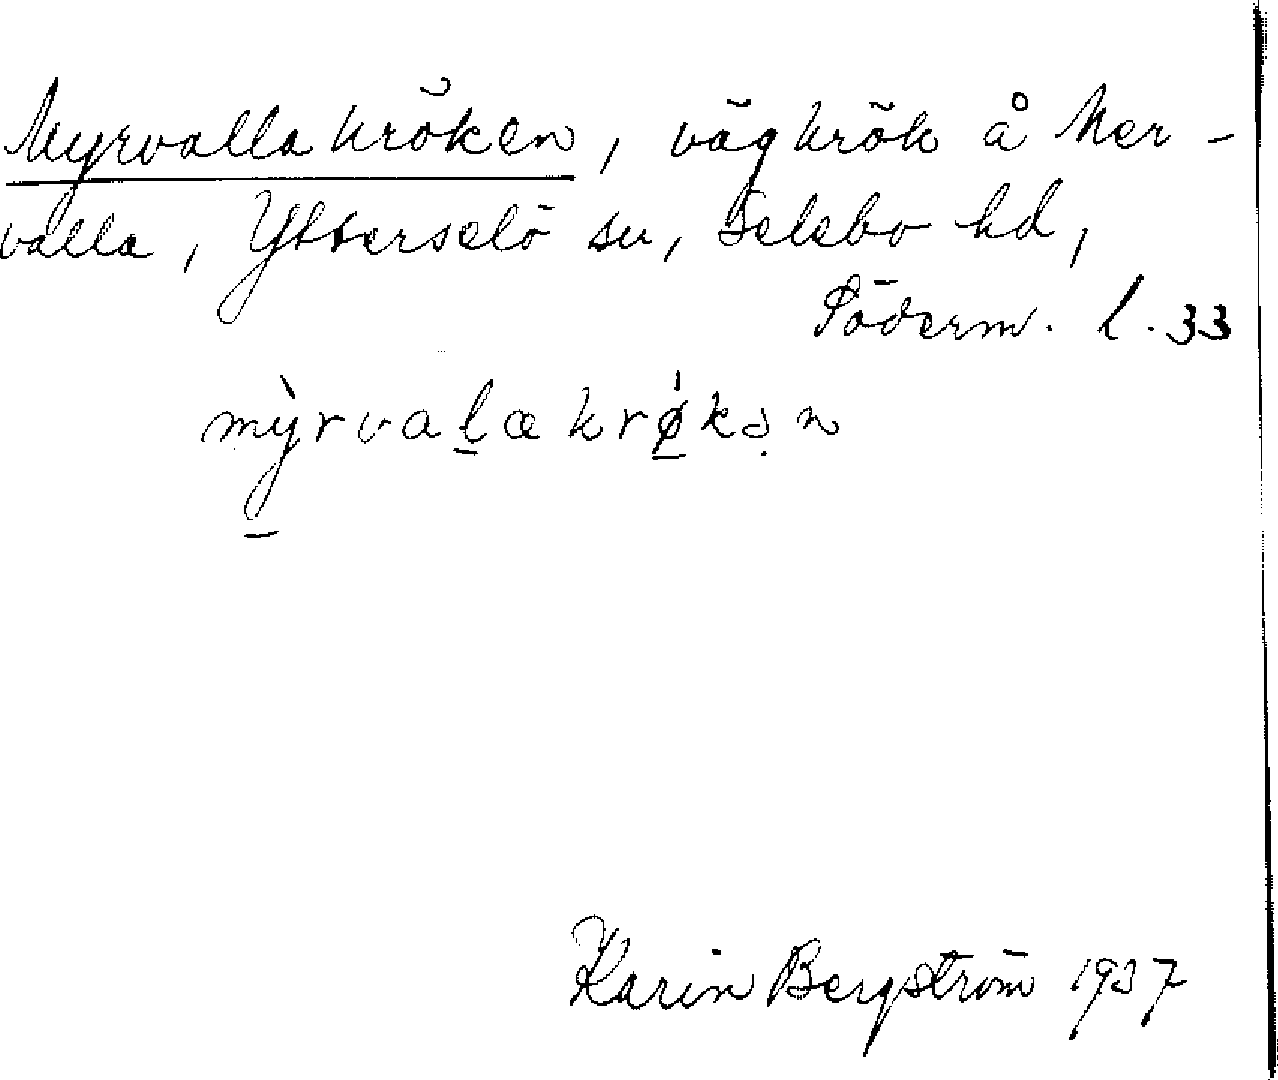 Myrvallakröken, vägkrök å Mer-
valla, Ytterselö sn, Selebo hd,
Söderm. l. 33
mỳrvalakrøkən
Karin Bergström 1937